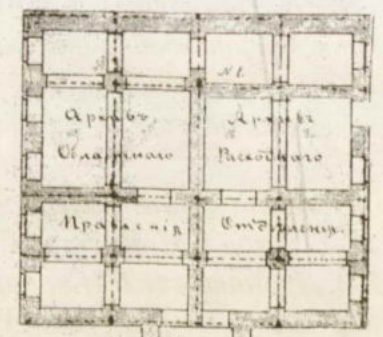 № 1.
Архивъ
Областного
Правленія
Архивъ
Расходнаго
Отдѣленія.